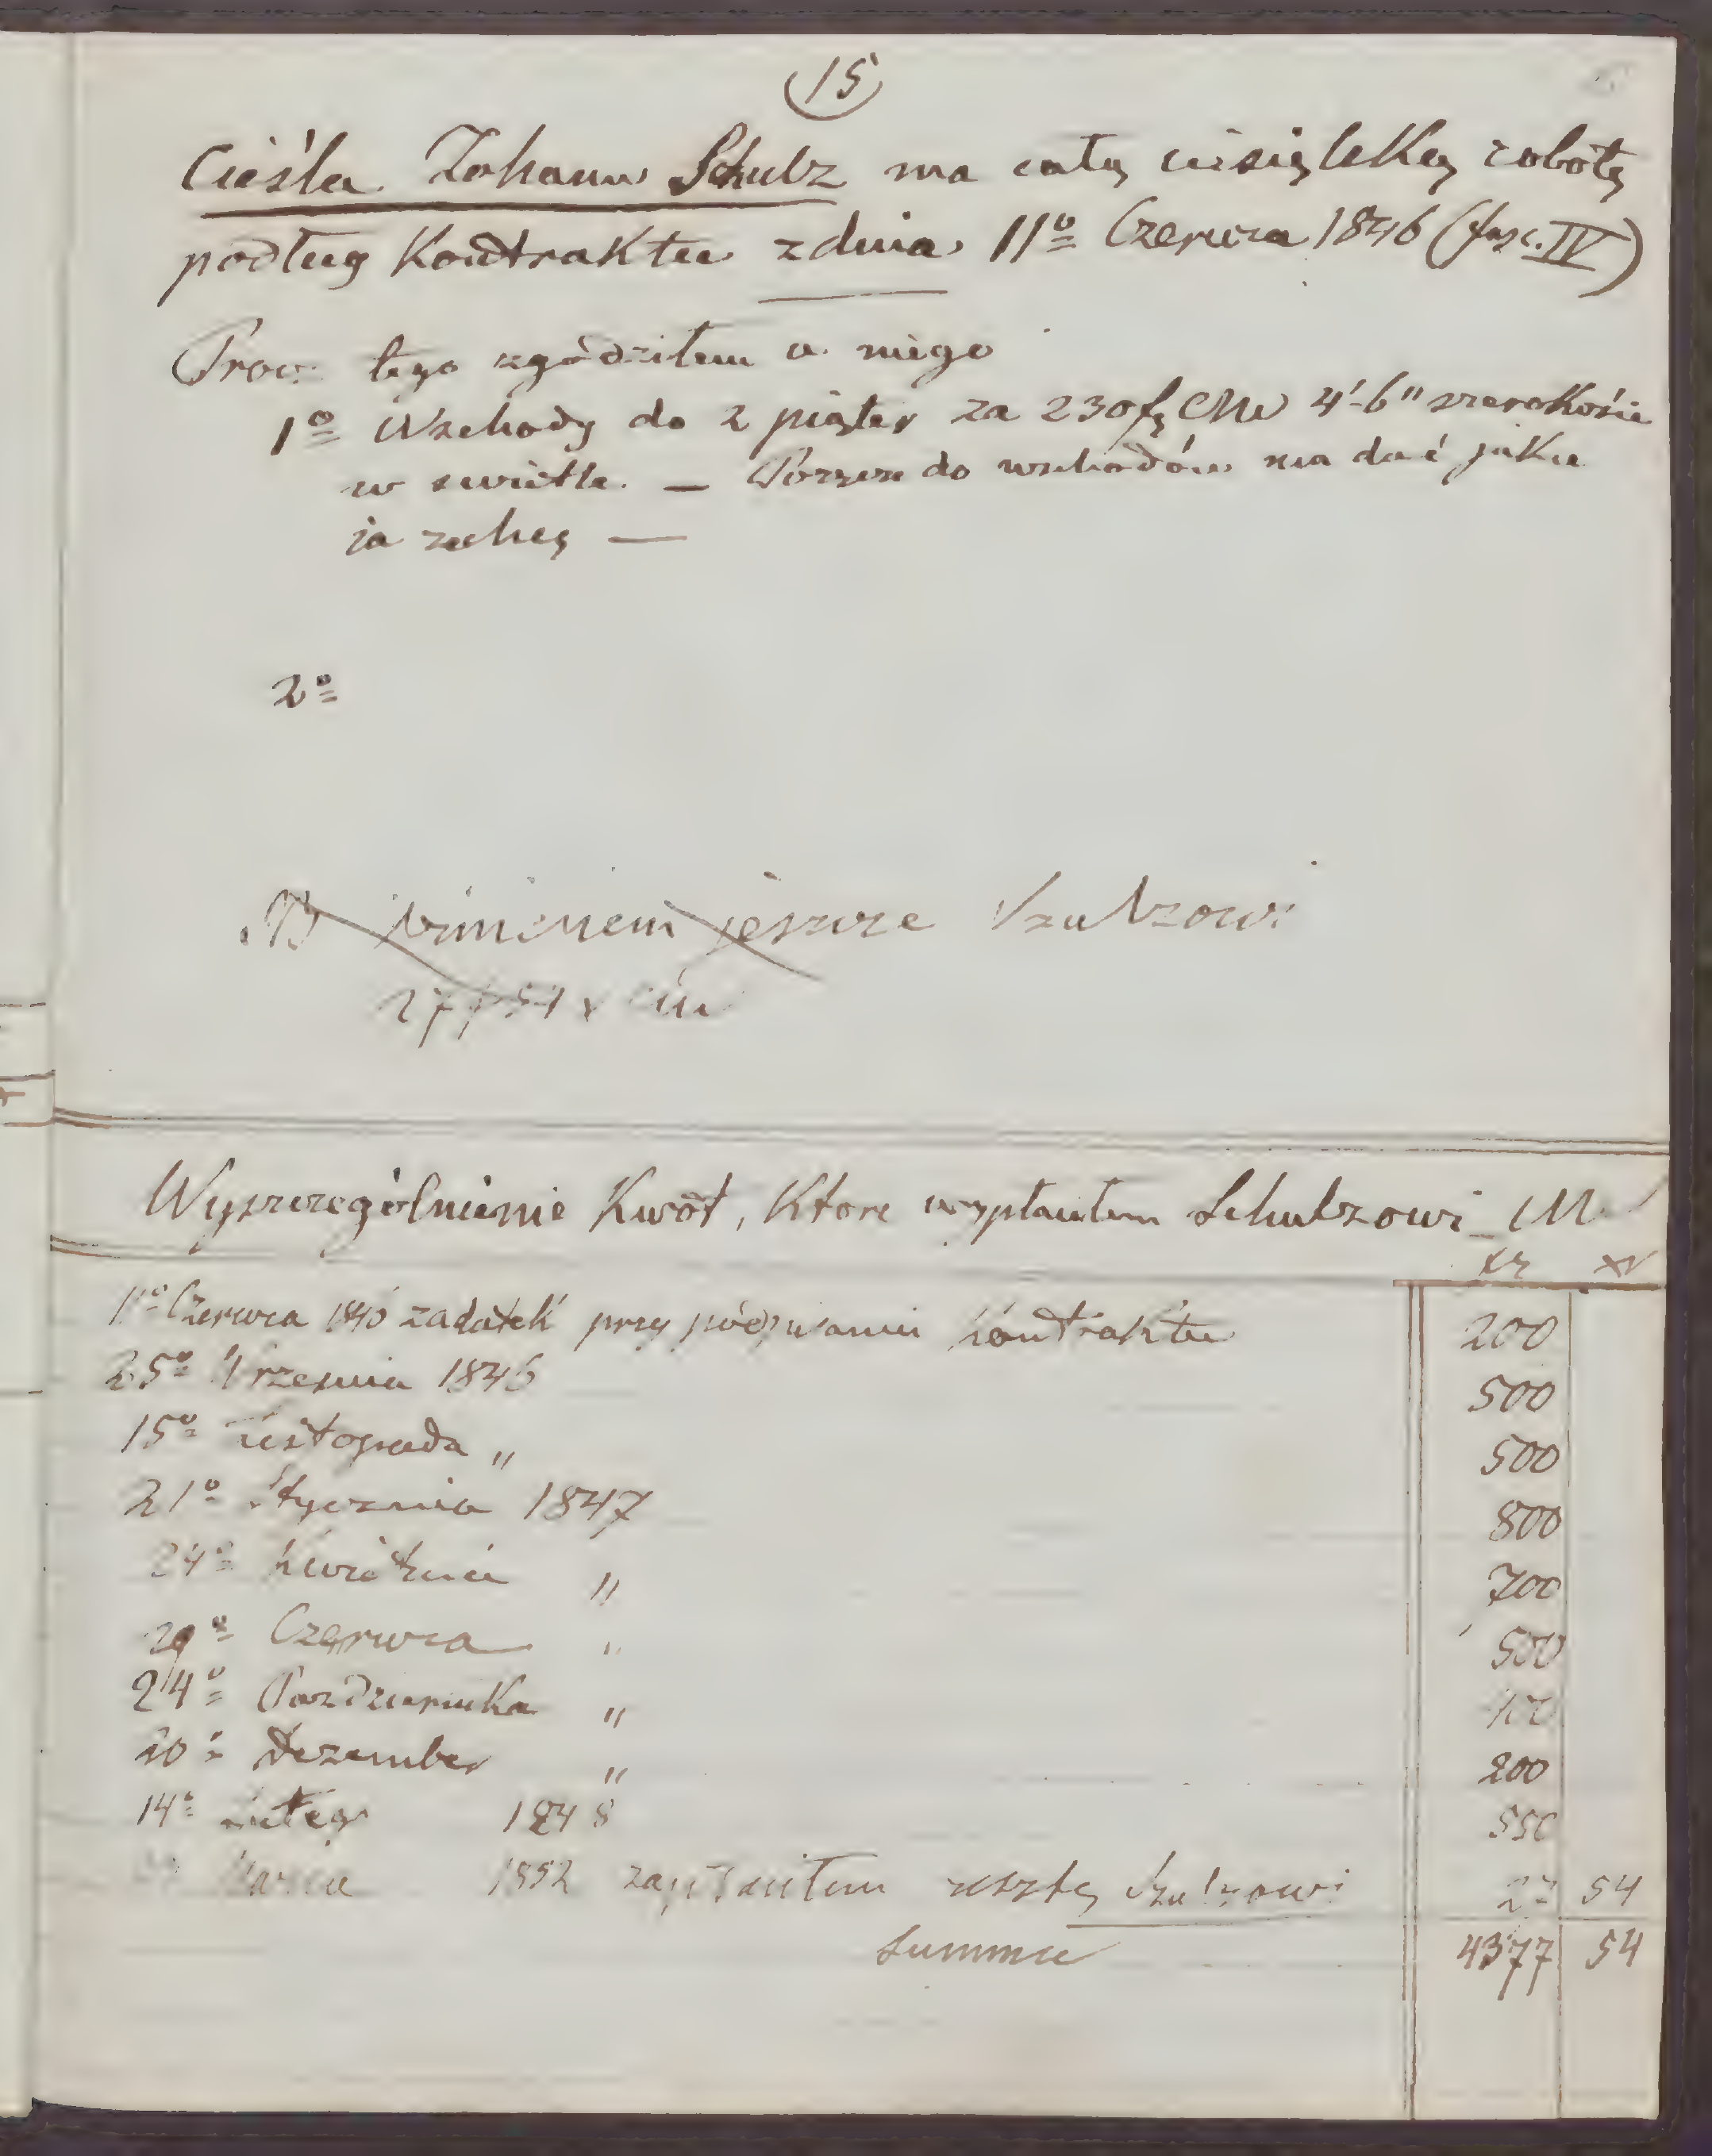 15
Cieśla Johann Schulz ma całą ciesielską robotę
podług Kontraktu z dnia 11º Czerwca 1846 (fasc. IV)
Procz tego zgodziłem u niego
1º Wschody do 2 piąter za 230 f CM 4'-6" szerokości
w swietle. — Poręcze do wschodów ma dać jakie
ja zechcę —
2º
winienem jeszcze Szulzowi
27 f 54 x CM
Wyszczególnienie Kwot, Ktore wypłaciłem Schulzowi CM
xr
11º Czerwca 1846 zadatek przy podpisaniu kontraktu 200
25º Września 1846 500
15º Listopada " 500
21º Stycznia 1847 800
24º Kwietnia " 700
29º Czerwca " 500
24º Pazdziernika " 400
20º Dezember " 200
14º Lutego 1848 550
Marca 1852 zapłaciłem resztę Szulzowi 27 54
Summa 4377 54